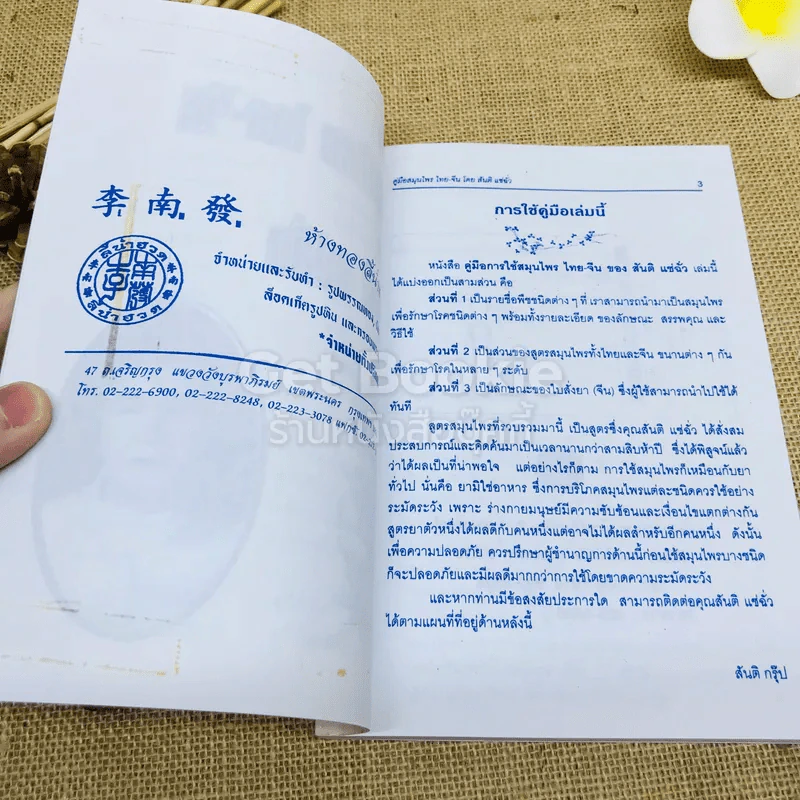 李南發
ห้างทองลี้น่ำ
ลี้น่ำฮวด
南
發
李
ลี้น่ำฮวด
จำหน่ายและรับทำ : รูปพรรณทอง
ล็อคเก็ตรูปหิน และกรอบ
*จำหน่าย
47 ถ.เจริญกรุง แขวงวังบูรพาภิรมย์ เขตพระนคร กรุงเทพ
โทร. 02-222-6900, 02-222-8248, 02-223-3078 แฟกซ์. 02-
คู่มือสมุนไพร ไทย-จีน โดย สันติ แซ่ฉั่ว 3
การใช้คู่มือเล่มนี้
หนังสือ คู่มือการใช้สมุนไพร ไทย-จีน ของ สันติ แซ่ฉั่ว เล่มนี้
ได้แบ่งออกเป็นสามส่วน คือ
ส่วนที่ 1 เป็นรายชื่อพืชชนิดต่าง ๆ ที่ เราสามารถนำมาเป็นสมุนไพร
เพื่อรักษาโรคชนิดต่าง ๆ พร้อมทั้งรายละเอียด ของลักษณะ สรรพคุณ และ
วิธีใช้
ส่วนที่ 2 เป็นส่วนของสูตรสมุนไพรทั้งไทยและจีน ขนานต่าง ๆ กัน
เพื่อรักษาโรคในหลาย ๆ ระดับ
ส่วนที่ 3 เป็นลักษณะของใบสั่งยา (จีน) ซึ่งผู้ใช้สามารถนำไปใช้ได้
ทันที
สูตรสมุนไพรที่รวบรวมมานี้ เป็นสูตรซึ่งคุณสันติ แซ่ฉั่ว ได้สั่งสม
ประสบการณ์และคิดค้นมาเป็นเวลานานกว่าสามสิบห้าปี ซึ่งได้พิสูจน์แล้ว
ว่าได้ผลเป็นที่น่าพอใจ แต่อย่างไรก็ตาม การใช้สมุนไพรก็เหมือนกับยา
ทั่วไป นั่นคือ ยามิใช่อาหาร ซึ่งการบริโภคสมุนไพรแต่ละชนิดควรใช้อย่าง
ระมัดระวัง เพราะ ร่างกายมนุษย์มีความซับซ้อนและเงื่อนไขแตกต่างกัน
สูตรยาตัวหนึ่งได้ผลดีกับคนหนึ่งแต่อาจไม่ได้ผลสำหรับอีกคนหนึ่ง ดังนั้น
เพื่อความปลอดภัย ควรปรึกษาผู้ชำนาญการด้านนี้ก่อนใช้สมุนไพรบางชนิด
ก็จะปลอดภัยและมีผลดีมากกว่าการใช้โดยขาดความระมัดระวัง
และหากท่านมีข้อสงสัยประการใด สามารถติดต่อคุณสันติ แซ่ฉั่ว
ได้ตามแผนที่ที่อยู่ด้านหลังนี้
สันติ กรุ๊ป
Get Bookie
ร้านหนังสือบุ๊กกี้